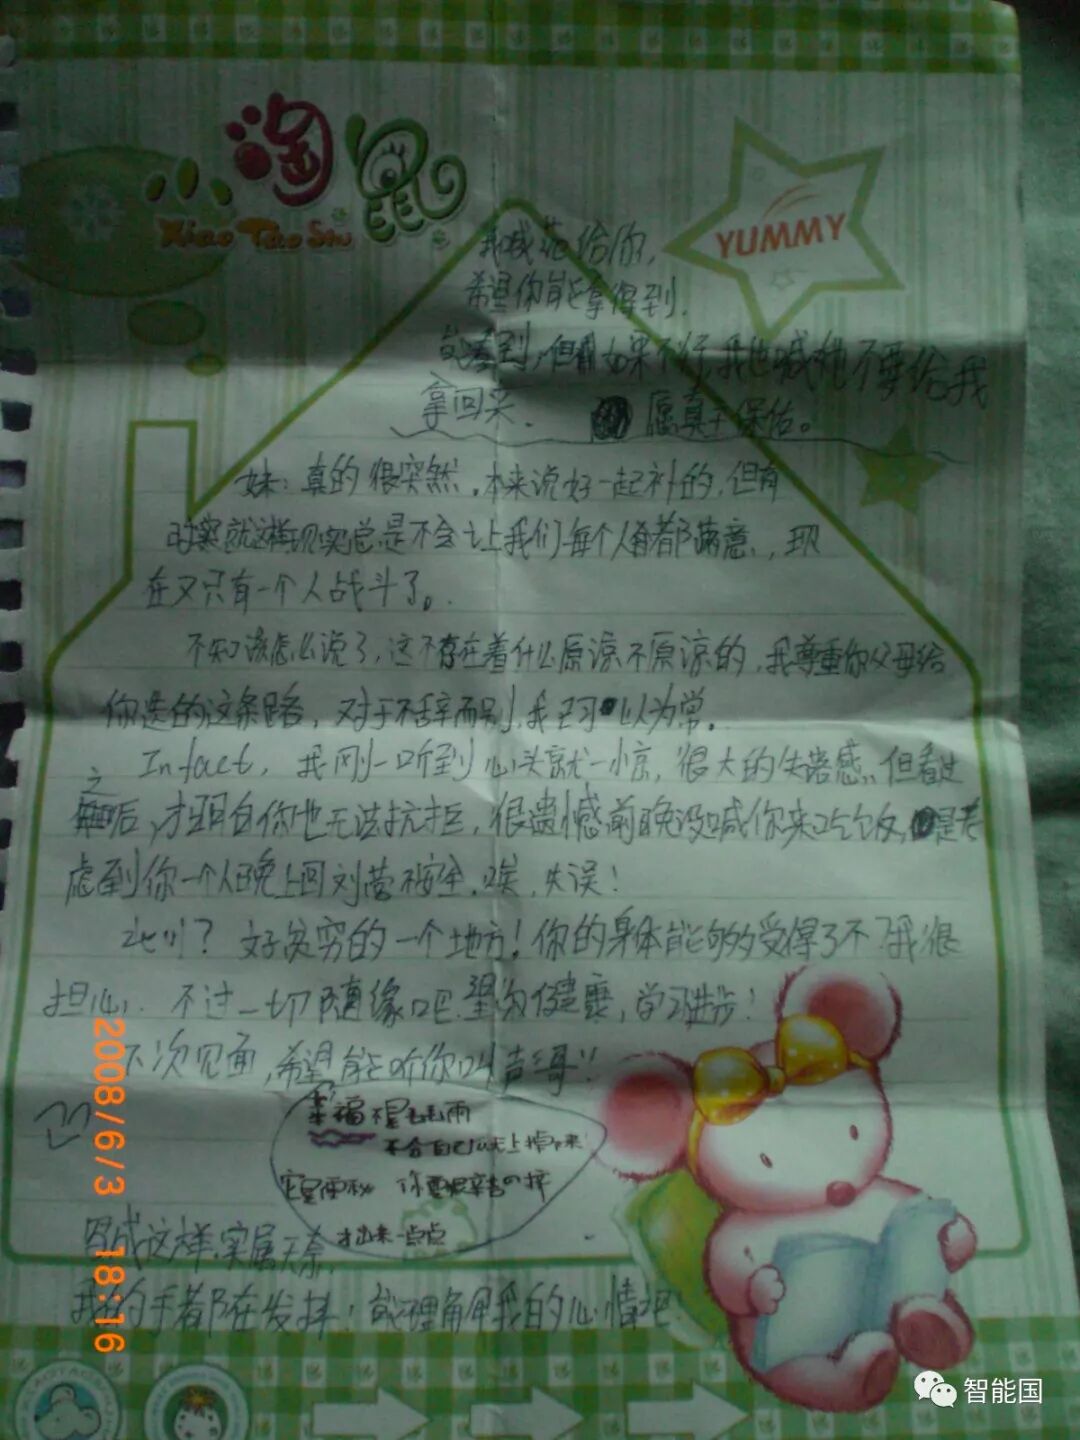 小淘鼠
Xiao Tao Shu
YUMMY
我喊花给你,
希望你能拿得到.
到,但如果不行,我也喊她不要给我
拿回来. 愿真主保佑。
妹:真的很突然,本来说好一起补的,但有
时候就这样现实总是不会让我们每个人都满意,现
在又只有一个人战斗了。
不知该怎么说了,这不存在着什么原谅不原谅的,我尊重你父母给
你选的这条路,对于不辞而别,我已习以为常。
In fact, 我刚一听到心头就一惊,很大的失落感,但看过
之后,才明白你也无法抗拒,很遗憾前晚没喊你来吃饭,是考
虑到你一个人晚上回刘营不安全,唉,失误!
好贫穷的一个地方!你的身体能够受得了不?我很
担心,不过一切随缘吧.望汝健康,学习进步!
下次见面,希望能听你叫声哥!!
幸福不是毛毛雨
不会自己从天上掉下来
你要很辛苦的挤
才出来一点点
写成这样,实属无奈.
我的手都在发抖,就理解我的心情吧!
2008/6/3 18:16
智能国